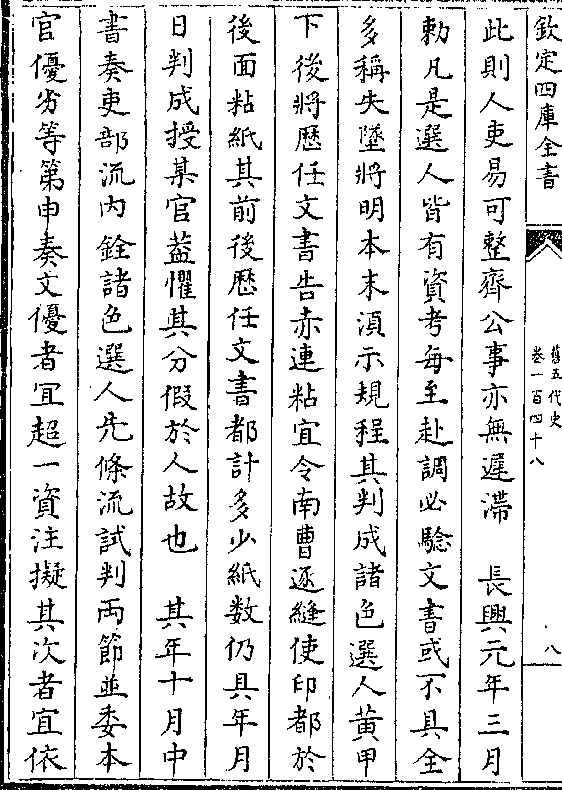 欽定四庫全書
舊五代史
卷一百四十八
八
此則人吏易可整齊公事亦無遲滯　長興元年三月
勅凡是選人皆有資考每至赴調必驗文書或不具全
多稱失墜將明本末須示規程其判成諸色選人黃甲
下後將歷任文書告赤連粘宜令南曹逐縫使印都於
後面粘紙其前後歷任文書都計多少紙数仍具年月
日判成授某官葢懼其分假於人故也　其年十月中
書奏吏部流内銓諸色選人先條流試判両節並委本
官優劣等第申奏文優者宜超一資注擬其次者宜依